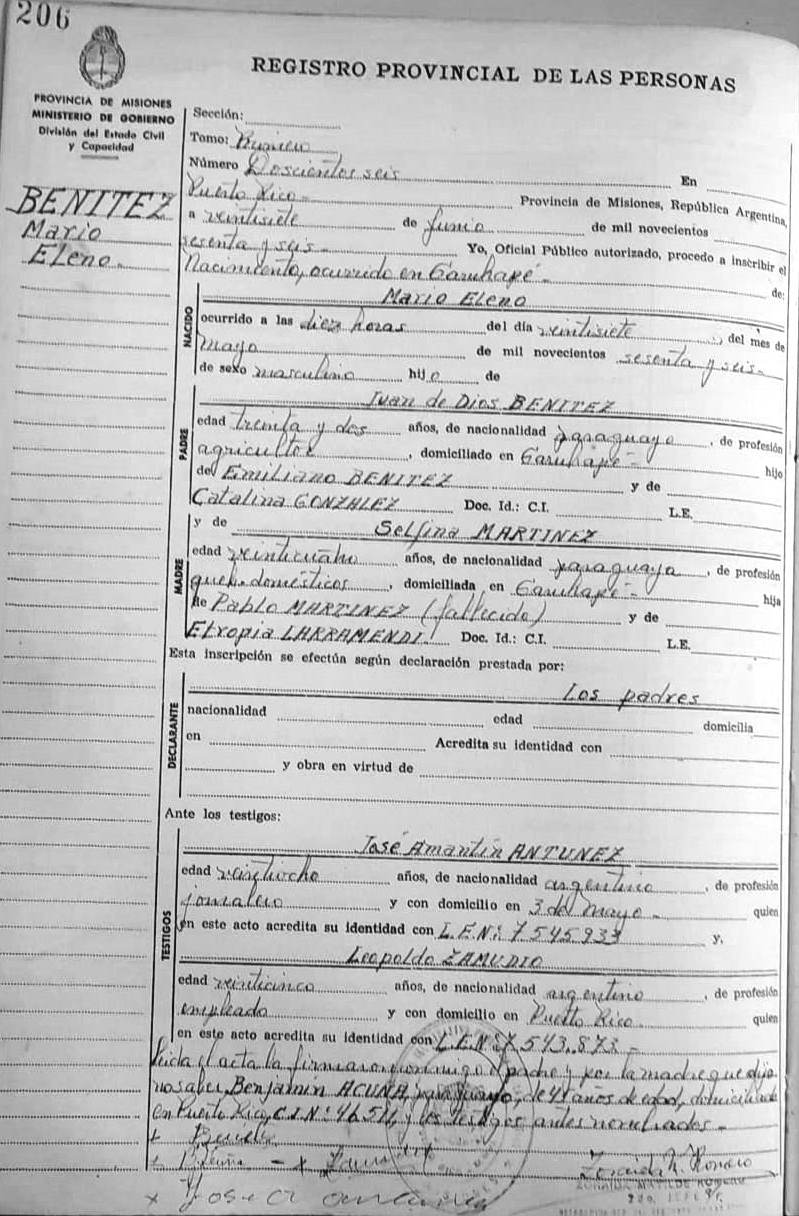 206
REGISTRO PROVINCIAL DE LAS PERSONAS
PROVINCIA DE MISIONES
MINISTERIO DE GOBIERNO
División del Estado Civil
y Capacidad
BENITEZ
Mario
Eleno.
Sección:
Tomo: Primero
Número Doscientos seis En
Puerto Rico - Provincia de Misiones, República Argentina,
a veintisiete de junio de mil novecientos
sesenta y seis - Yo, Oficial Público autorizado, procedo a inscribir el
Nacimiento, ocurrido en Garuhapé - de:
NACIDO
Mario Eleno
ocurrido a las diez horas del día veintisiete del mes de
mayo de mil novecientos sesenta y seis -
de sexo masculino hijo de
PADRE
Juan de Dios BENITEZ
edad treinta y dos años, de nacionalidad paraguayo, de profesión
agricultor, domiciliado en Garuhapé - hijo
de Emiliano BENITEZ y de
Catalina GONZALEZ Doc. Id.: C.I. L.E.
MADRE
y de Selfina MARTINEZ
edad veinticuatro años, de nacionalidad paraguaya, de profesión
queh. domésticos, domiciliada en Garuhapé - hija
de Pablo MARTINEZ (fallecido) y de
Etropia LARRAMENDI. Doc. Id.: C.I. L.E.
Esta inscripción se efectúa según declaración prestada por:
DECLARANTE
Los padres
nacionalidad edad domicilia
en Acredita su identidad con
y obra en virtud de
Ante los testigos:
TESTIGOS
José Amantín ANTUNEZ
edad veintiocho años, de nacionalidad argentino, de profesión
jornalero y con domicilio en 3 de Mayo - quien
en este acto acredita su identidad con L.E.Nº: 7545933 y,
Leopoldo ZAMUDIO
edad veinticinco años, de nacionalidad argentino, de profesión
empleado y con domicilio en Puerto Rico. quien
en este acto acredita su identidad con L.E.Nº: 7.543.873 -
Leida el acta la firmaron conmigo el padre y por la madre que dijo
no saber, Benjamín ACUÑA, paraguayo, de 41 años de edad, domiciliado
en Puerto Rico, C.I.Nº: 46511, y los testigos antes nombrados -
Zoraida M. Romero
ZORAIDA MATILDE ROMERO